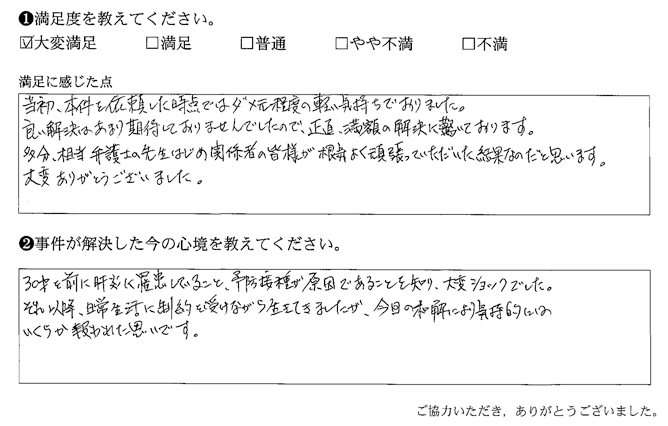 ❶満足度を教えてください。
☑大変満足 □満足 □普通 □やや不満 □不満
満足に感じた点
当初、本件を依頼した時点ではダメ元程度の軽い気持ちでおりました。
良い解決はあまり期待しておりませんでしたので、正直、満額の解決に驚いております。
多分、担当弁護士の先生はじめ関係者の皆様が根気よく頑張っていただいた結果なのだと思います。
大変ありがとうございました。
❷事件が解決した今の心境を教えてください。
30才を前に肝炎に罹患していること、予防接種が原因であることを知り、大変ショックでした。
それ以降、日常生活に制約を受けながら生きてきましたが、今日の和解により気持的には
いくらか報われた思いです。
ご協力いただき，ありがとうございました。